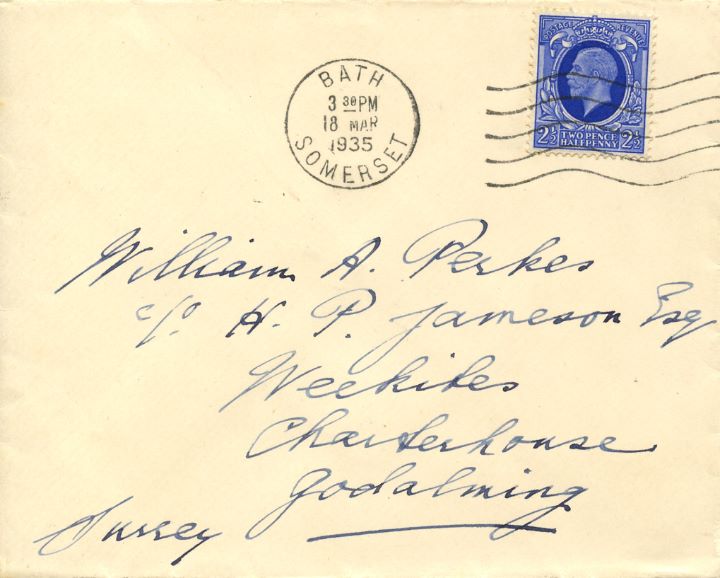 BATH
3 30PM
18 MAR
1935
SOMERSET
POSTAGE REVENUE
2½ TWO PENCE HALFPENNY 2½
William A. Perkes
c/o H. P. Jameson Esq
Weekites
Charterhouse
Godalming
Surrey